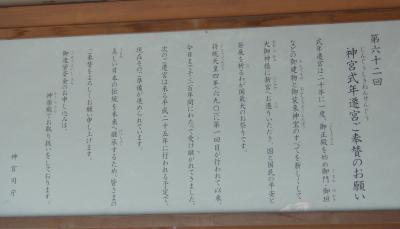 第六十二回
神宮式年遷宮ご奉賛のお願い
式年遷宮は二十年に一度、御正殿を始め御門御垣
などの御建物と御装束神宝のすべてを新しくして、
大御神様に新宮へお遷りいただき、国と国民の平安と
発展を祈るわが国最大のお祭りです。
持統天皇四年（六九〇）に第一回目が行われて以来、
今日まで千三百年間にわたって受け継がれてきました。
次のご遷宮は来る平成二十五年に行われる予定で、
現在そのご準備が進められています。
美しい日本の伝統を未来へ継承するため、皆さまの
ご奉賛をよろしくお願い申し上げます。
御造営資金のお申し込みは、
神楽殿でお取り扱いをしております。
神宮司庁